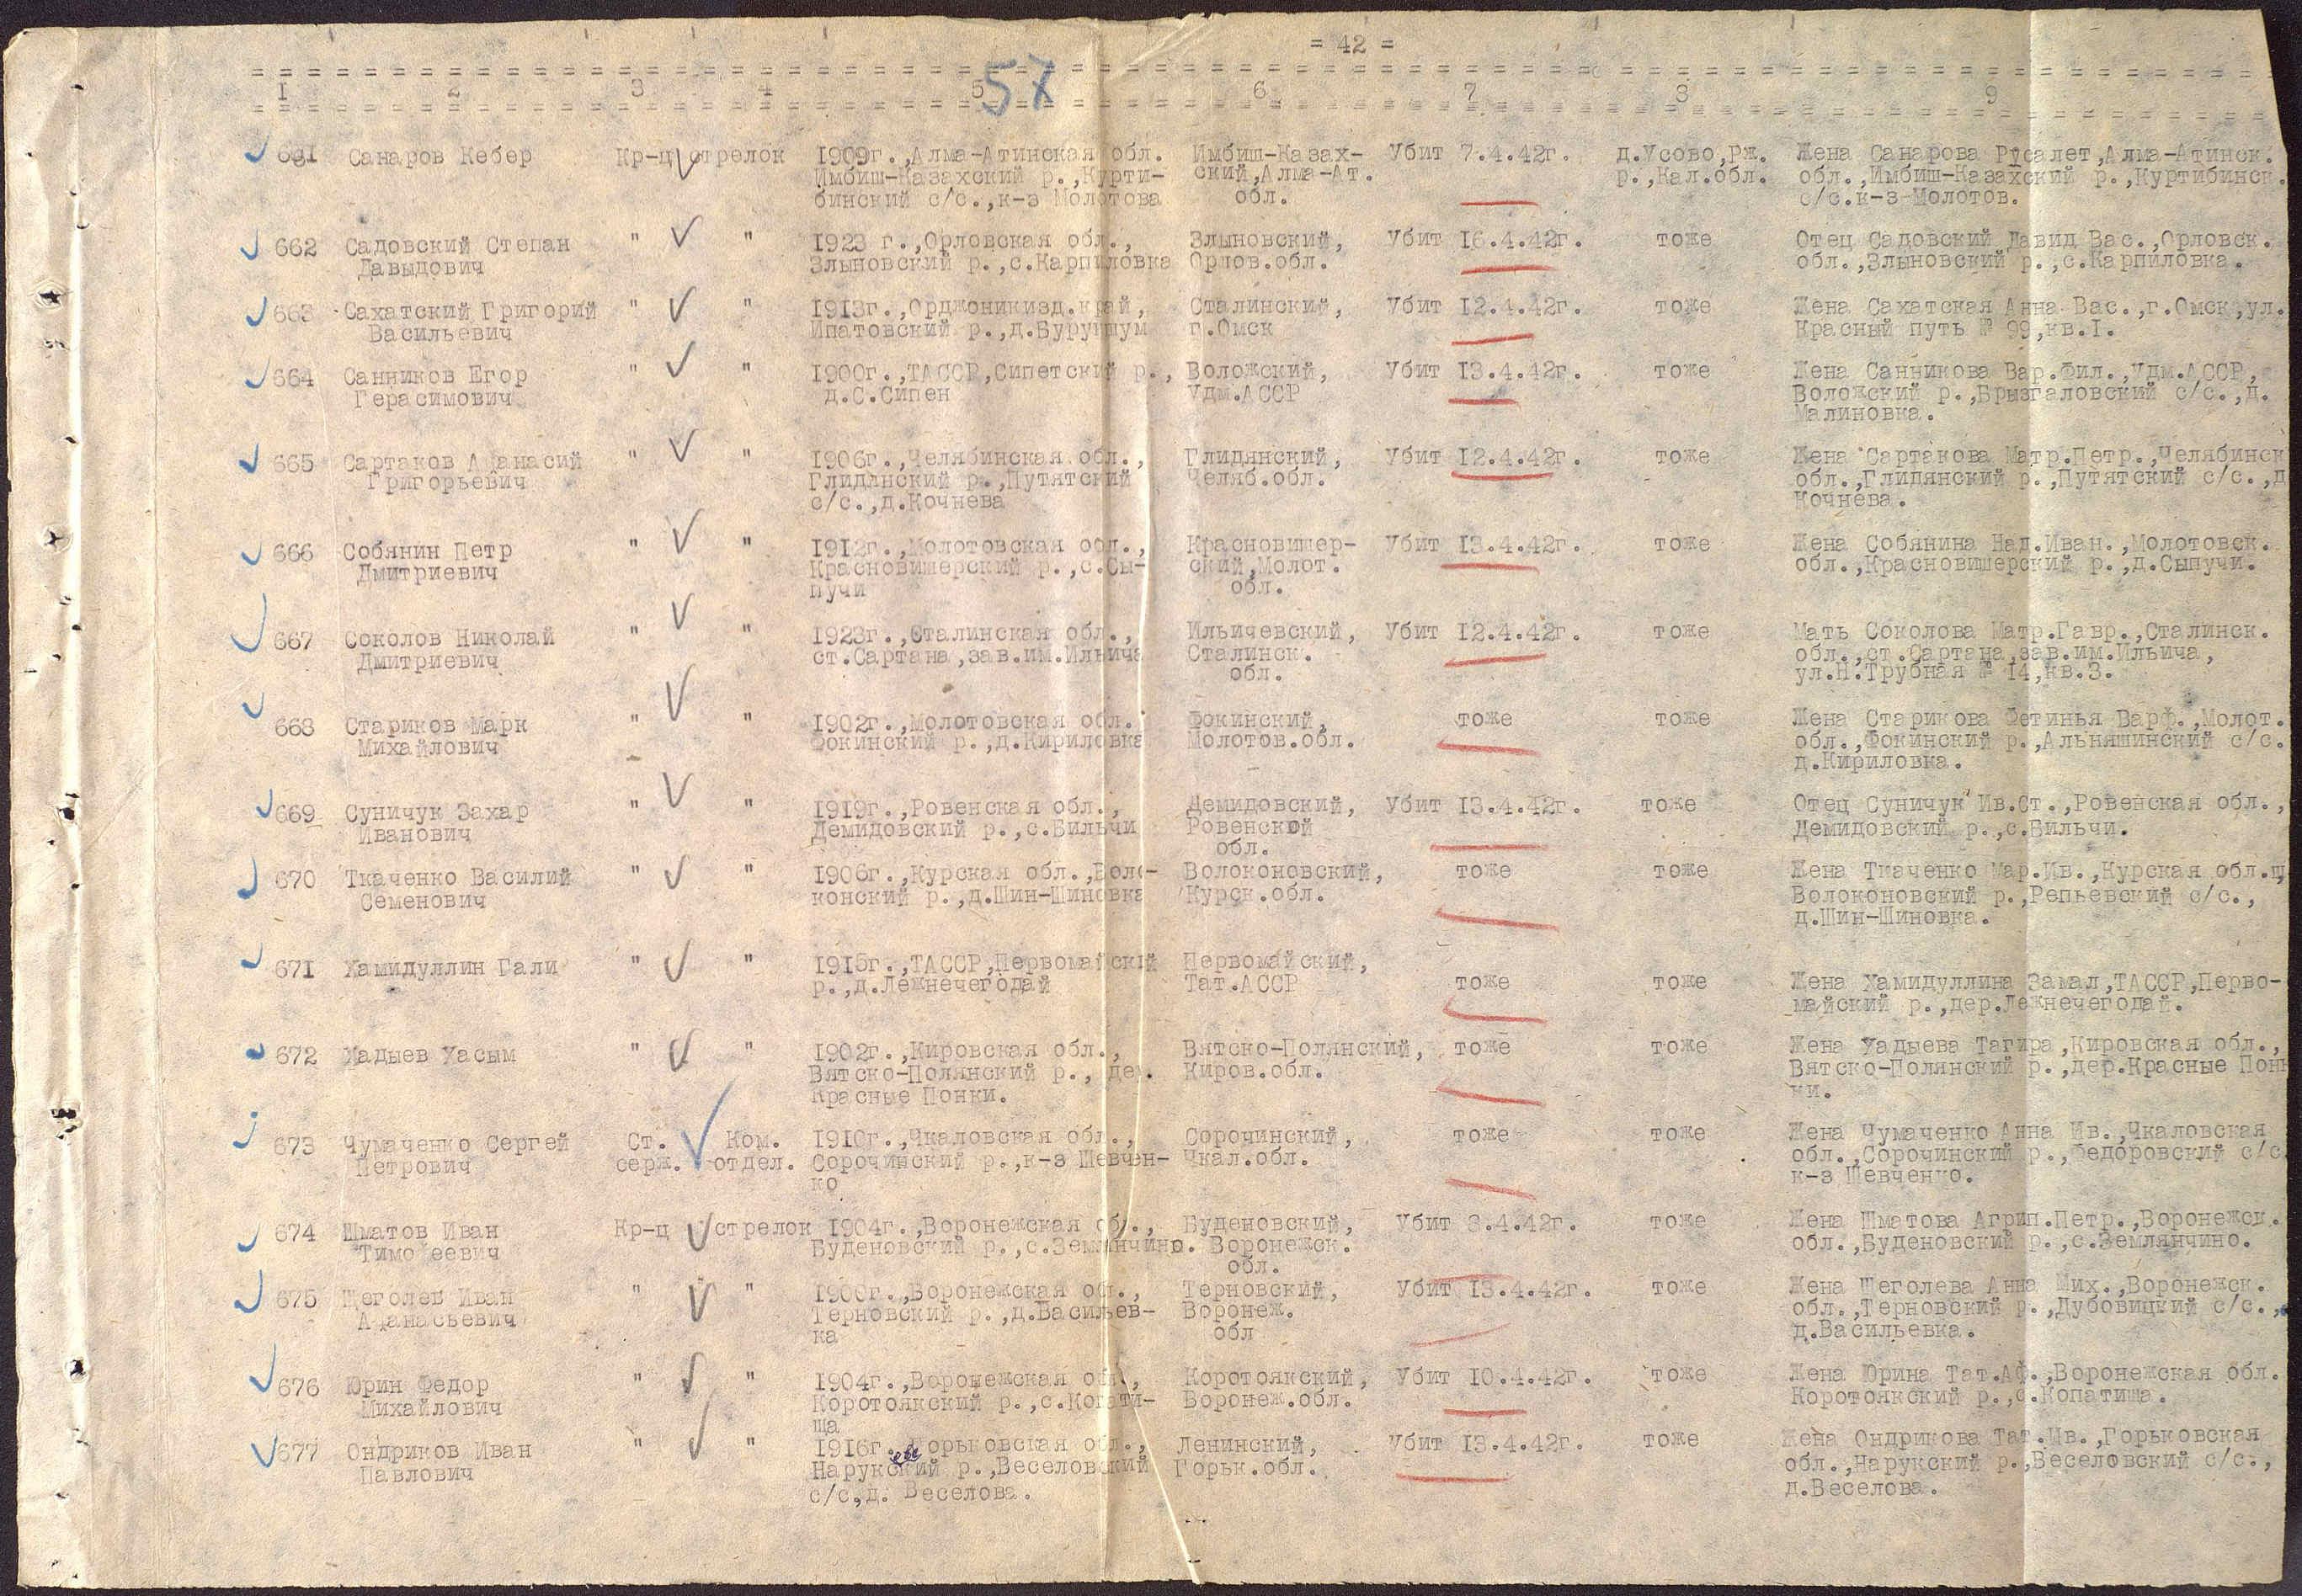 = 42 =
57
1 2 3 4 5 6 7 8 9
661 Санаров Кебер Кр-ц стрелок 1909г.,Алма-Атинская обл. Имбиш-Казах- Убит 7.4.42г. д.Усово,Рж. Жена Санарова Русалет,Алма-Атинск.
Имбиш-Казахский р.,Курти- ский,Алма-Ат. р.,Кал.обл. обл.,Имбиш-Казахский р.,Куртибинск.
бинский с/с.,к-з Молотова обл. с/с.к-з-Молотов.
662 Садовский Степан " " 1923 г.,Орловская обл., Злыновский, Убит 16.4.42г. тоже Отец Садовский Давид Вас.,Орловск.
Давыдович Злыновский р.,с.Карпиловка Орлов.обл. обл.,Злыновский р.,с.Карпиловка.
663 Сахатский Григорий " " 1913г.,Орджоникизд.край, Сталинский, Убит 12.4.42г. тоже Жена Сахатская Анна Вас.,г.Омск,ул.
Васильевич Ипатовский р.,д.Бурукшум г.Омск Красный путь № 99,кв.1.
664 Санников Егор " " 1900г.,ТАССР,Сипетский р., Воложский, Убит 13.4.42г. тоже Жена Санникова Вар.Фил.,Удм.АССР,
Герасимович д.С.Сипен Удм.АССР Воложский р.,Брызгаловский с/с.,д.
Малиновка.
665 Сартаков Афанасий " " 1906г.,Челябинская обл., Глидянский, Убит 12.4.42г. тоже Жена Сартакова Матр.Петр.,Челябинск
Григорьевич Глидянский р.,Путятский Челяб.обл. обл.,Глидянский р.,Путятский с/с.,д
с/с.,д.Кочнева Кочнева.
666 Собянин Петр " " 1912г.,Молотовская обл., Красновишер- Убит 13.4.42г. тоже Жена Собянина Над.Иван.,Молотовск.
Дмитриевич Красновишерский р.,с.Сы- ский,Молот. обл.,Красновишерский р.,д.Сыпучи.
пучи обл.
667 Соколов Николай " " 1923г.,Сталинская обл., Ильичевский, Убит 12.4.42г. тоже Мать Соколова Матр.Гавр.,Сталинск.
Дмитриевич ст.Сартана,зав.им.Ильича Сталинск. обл.,ст.Сартана,зав.им.Ильича,
обл. ул.Н.Трубная № 14,кв.3.
668 Стариков Марк " " 1902г.,Молотовская обл. Фокинский, тоже тоже Жена Старикова Фетинья Варф.,Молот.
Михайлович Фокинский р.,д.Кириловка Молотов.обл. обл.,Фокинский р.,Альняшинский с/с.
д.Кириловка.
669 Суничук Захар " " 1919г.,Ровенская обл., Демидовский, Убит 13.4.42г. тоже Отец Суничук Ив.Ст.,Ровенская обл.,
Иванович Демидовский р.,с.Бильчи Ровенской Демидовский р.,с.Бильчи.
обл.
670 Ткаченко Василий " " 1906г.,Курская обл.,Воло- Волоконовский, тоже тоже Жена Ткаченко Мар.Ив.,Курская обл.щ
Семенович конский р.,д.Шин-Шиновка Курск.обл. Волоконовский р.,Репьевский с/с.,
д.Шин-Шиновка.
671 Хамидуллин Гали " " 1915г.,ТАССР,Первомайский Первомайский,
р.,д.Лежнечегодай Тат.АССР тоже тоже Жена Хамидуллина Замал,ТАССР,Перво-
майский р.,дер.Лежнечегодай.
672 Хадыев Хасым " " 1902г.,Кировская обл., Вятско-Полянский, тоже тоже Жена Хадыева Тагира,Кировская обл.,
Вятско-Полянский р., дер. Киров.обл. Вятско-Полянский р.,дер.Красные Пон
Красные Понки. ки.
673 Чумаченко Сергей Ст. Ком. 1910г.,Чкаловская обл., Сорочинский, тоже тоже Жена Чумаченко Анна Ив.,Чкаловская
Петрович серж. отдел. Сорочинский р.,к-з Шевчен- Чкал.обл. обл.,Сорочинский р.,Федоровский с/с
ко к-з Шевченко.
674 Шматов Иван Кр-ц стрелок 1904г.,Воронежская обл., Буденовский, Убит 8.4.42г. тоже Жена Шматова Агрип.Петр.,Воронежск.
Тимофеевич Буденовский р.,с.Землянчино. Воронежск. обл.,Буденовский р.,с.Землянчино.
обл.
675 Щеголев Иван " " 1900г.,Воронежская обл., Терновский, Убит 13.4.42г. тоже Жена Щеголева Анна Мих.,Воронежск.
Афанасьевич Терновский р.,д.Васильев- Воронеж. обл.,Терновский р.,Дубовицкий с/с.,
ка обл д.Васильевка.
676 Юрин Федор " " 1904г.,Воронежская обл., Коротоякский, Убит 10.4.42г. тоже Жена Юрина Тат.Аф.,Воронежская обл.
Михайлович Коротоякский р.,с.Копати- Воронеж.обл. Коротоякский р.,с.Копатища.
ща
677 Ондриков Иван " " 1916г.,Горьковская обл., Ленинский, Убит 13.4.42г. тоже Жена Ондрикова Тат.Ив.,Горьковская
Павлович Нарукский р.,Веселовский Горьк.обл. обл.,Нарукский р.,Веселовский с/с.,
с/с,д. Веселова. д.Веселова.